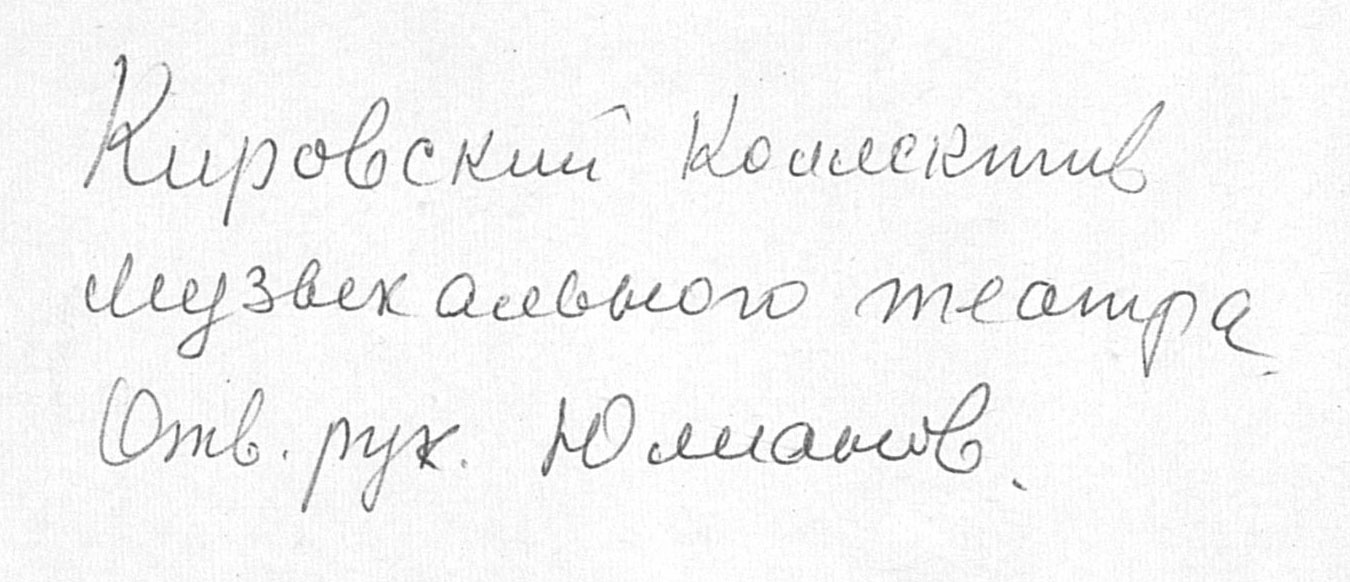 Кировский Коллектив
музыкального театра
Отв. рук. Юлианов.